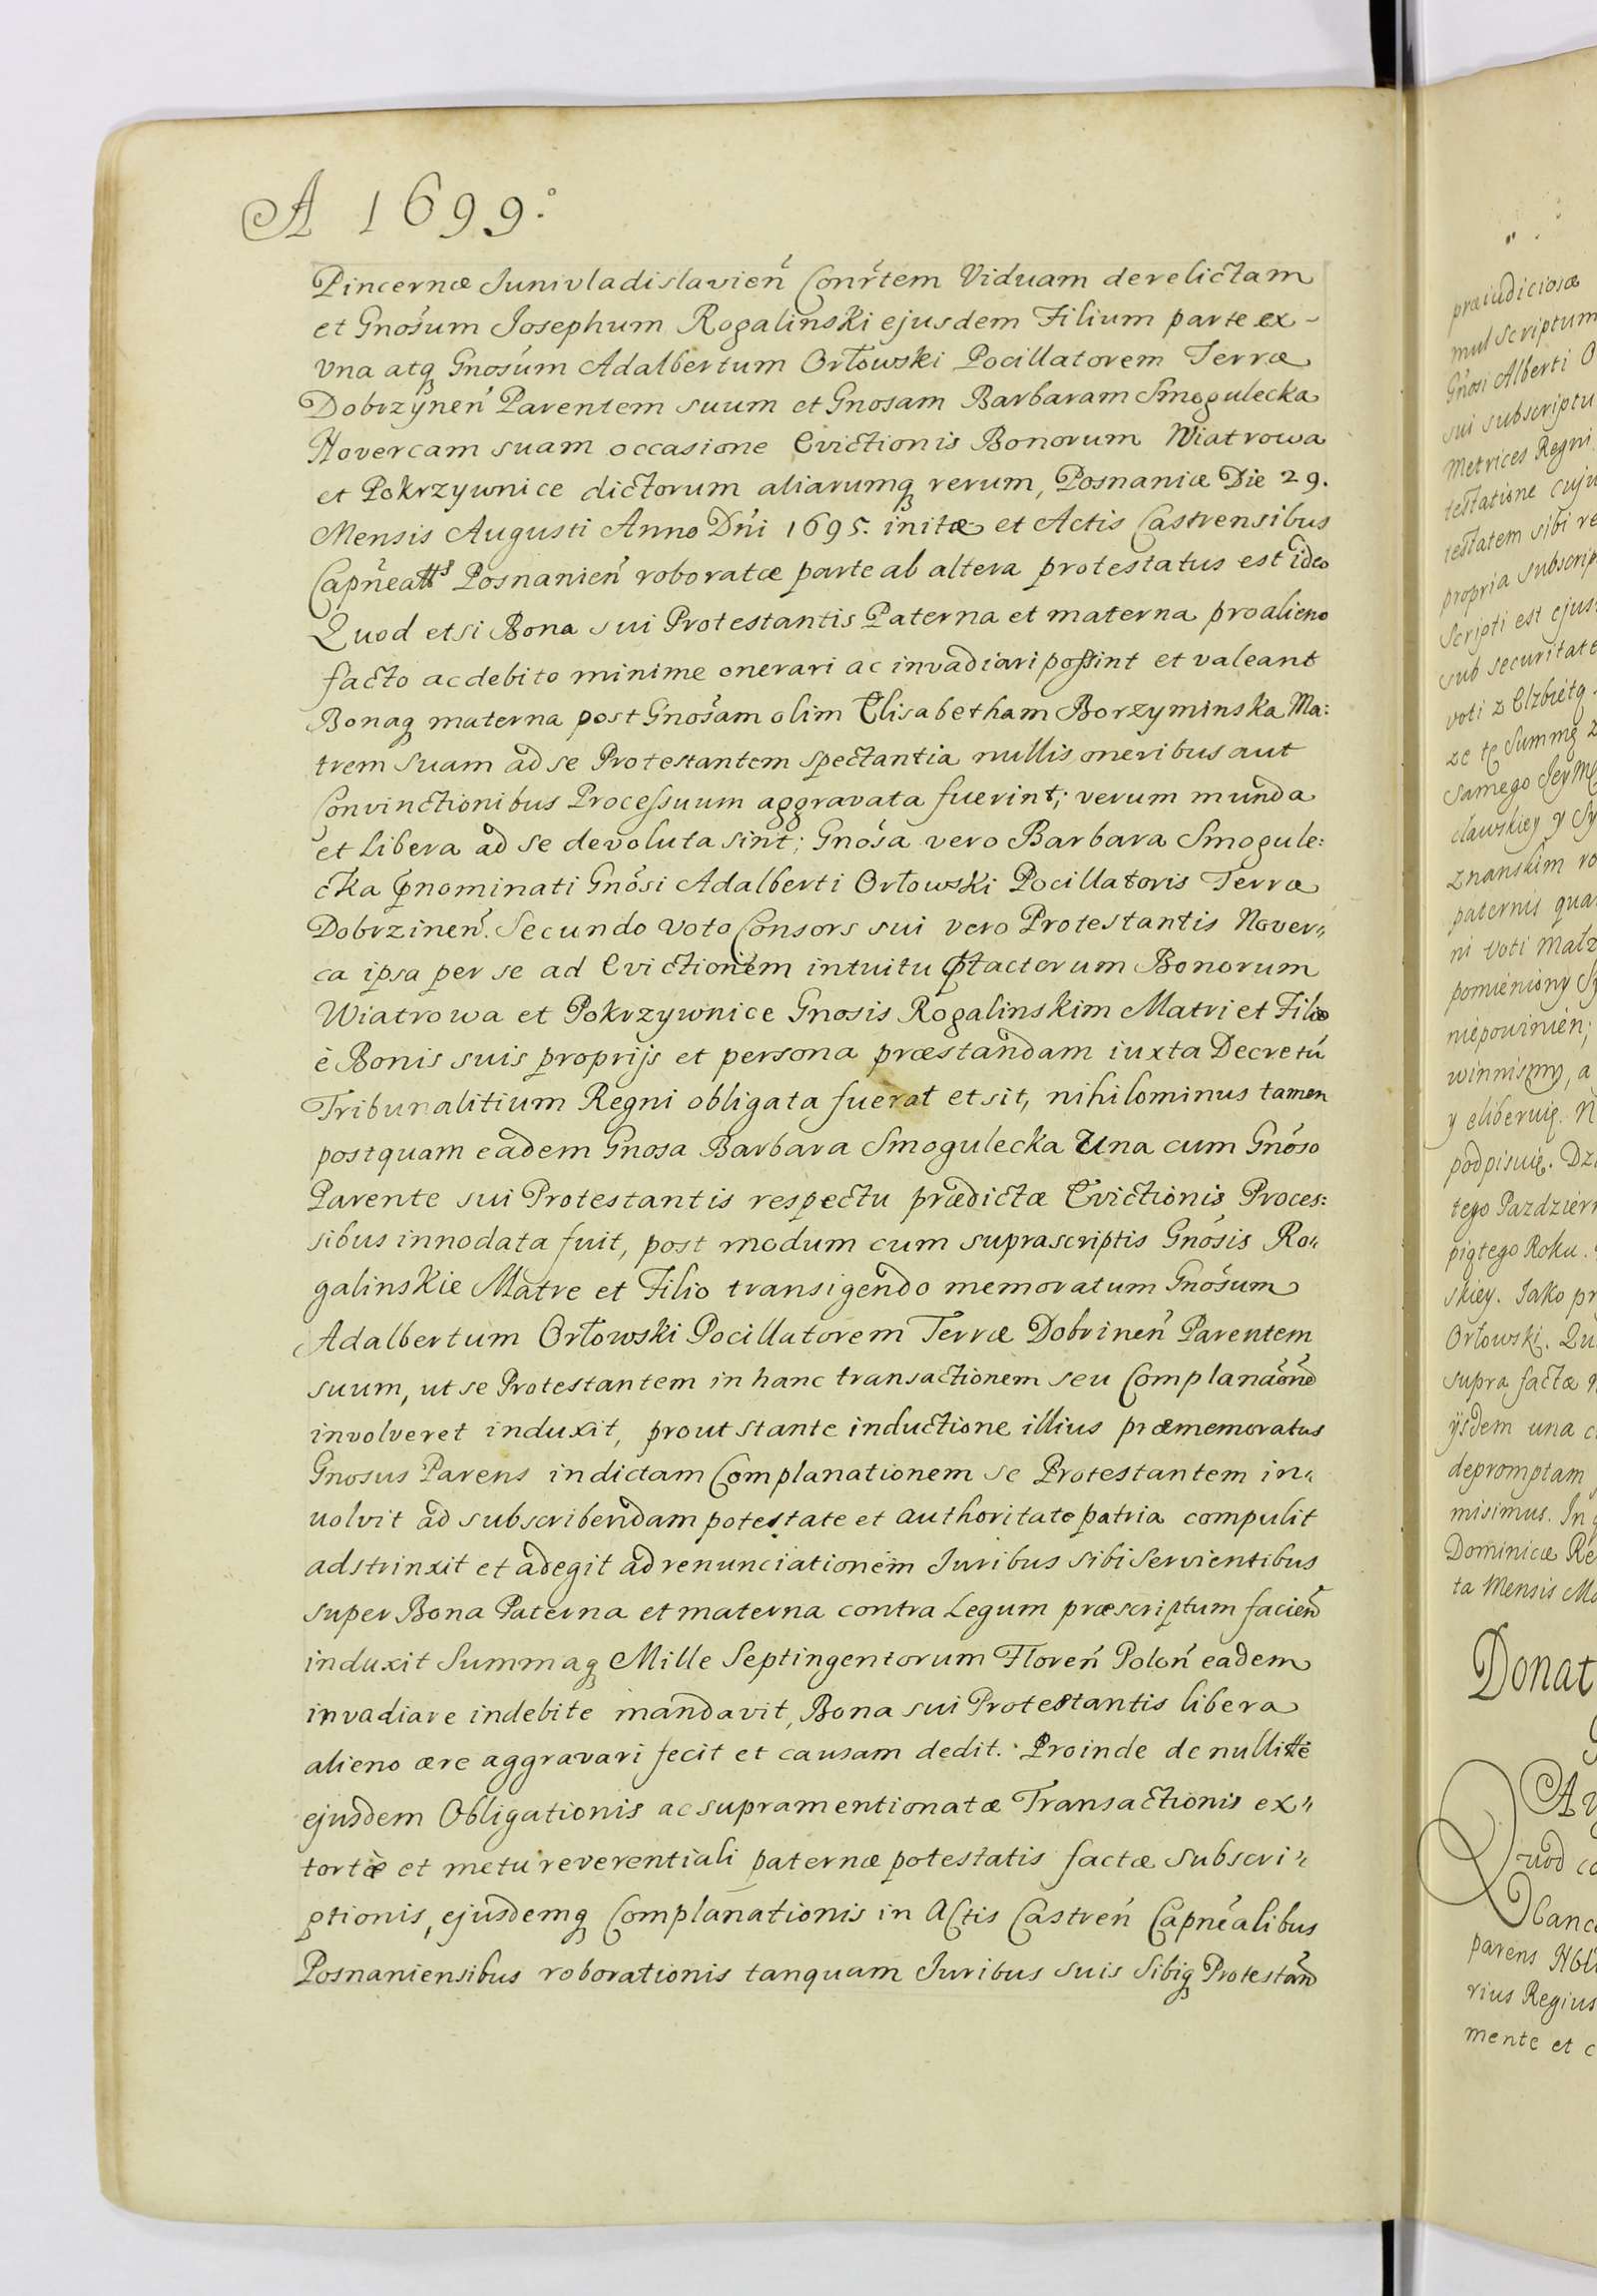 A 1699°.
Pincernæ Junivladislavien̄ Conr̃tem Viduam derelictam
et Gnosum Josephum Rogalinski ejusdem Filium parte ex-
Vna atq Gnosum Adalbertum Orłowski Pocillatorem Terræ
Dobrzynen̄ Parentem suum et Gnosam Barbaram Smogulecka
Novercam suam occasione Evictionis Bonorum Wiatrowa
et Pokrzywnice dictorum aliarumq rerum, Posnaniæ Die 29.
Mensis Augusti Anno Dñi 1695. initæ et Actis Castrensibus
Posnanien̄ roboratæ parte ab altera protestatus est ideo
Quod etsi Bona sui Protestantis Paterna et materna pro alieno
facto ac debito minime onerari ac invadiari possint et valeant
Bonaq materna post Gnosam olim Elisabetham Borzyminska Ma:
trem suam ad se Protestantem spectantia nullis oneribus aut
Convinctionibus Processuum aggravata fuerint; verum munda
et libera ad se devoluta sint; Gnosa vero Barbara Smogule:
cka p̄nominati Gnosi Adalberti Orłowski Pocillatoris Terræ
Dobrzinen̄. Secundo voto Consors sui vero Protestantis Nover„
ca ipsa per se ad Evictionem intuitu p̄tactorum Bonorum
Wiatrowa et Pokrzywnice Gnosis Rogalinskim Matri et Filio
è Bonis suis proprijs et persona præstandam iuxta Decretū
Tribunalitium Regni obligata fuerat et sit, nihilominus tamen
postquam eadem Gnosa Barbara Smogulecka Una cum Gnoso
Parente sui Protestantis respectu prædictæ Evictionis Proces:
sibus innodata fuit, post modum cum suprascriptis Gnosis Ro„
galinskie Matre et Filio transigendo memoratum Gnosum
Adalbertum Orłowski Pocillatorem Terræ Dobrinen̄ Parentem
suum, ut se Protestantem in hanc transactionem seu
involveret induxit, prout stante inductione illius præmemoratus
Gnosus Parens in dictam Complanationem se Protestantem in„
uolvit ad subscribendam potestate et authoritate patria compulit
adstrinxit et adegit ad renunciationem Juribus sibi servientibus
super Bona Paterna et materna contra Legum præscriptum facien̄
induxit Summaq Mille Septingentorum Floren̄ Polon̄ eadem
invadiare indebite mandavit, Bona sui Protestantis libera
alieno ære aggravari fecit et causam dedit. Proinde de nullitte
ejusdem Obligationis ac supramentionatæ Transactionis ex„
tortæ et metu reverentiali paternæ potestatis factæ Subscri„
ptionis, ejusdemq Complanationis in Actis Castren̄ Capnealibus
Posnaniensibus roborationis tanquam Juribus suis Sibiq Protestan̄
præiudiciosæ
mul scriptum
Gnosi Alberti O
sui subscriptu
Metrices Regni
testatione cuju
testatem sibi re
propria subscrip
Scripti est ejus
sub securitate
voti z Elzbietą
ze tę Summę z
Samego
cławskiey y Sy
znanskim ro
paternis qua
ni voti Małz
pomieniony Sy
niepowinien;
winnismy, a
y eliberuię. N
podpisuię. Dz
tego Pazdziern
piątego Roku.
skiey. Jako pr
Orłowski. Qu
supra factæ
ijsdem una c
depromptam
misimus. In
Dominicæ Re
ta Mensis Ma
Donat
uod co
Canc
parens
rius Regius
mente et c